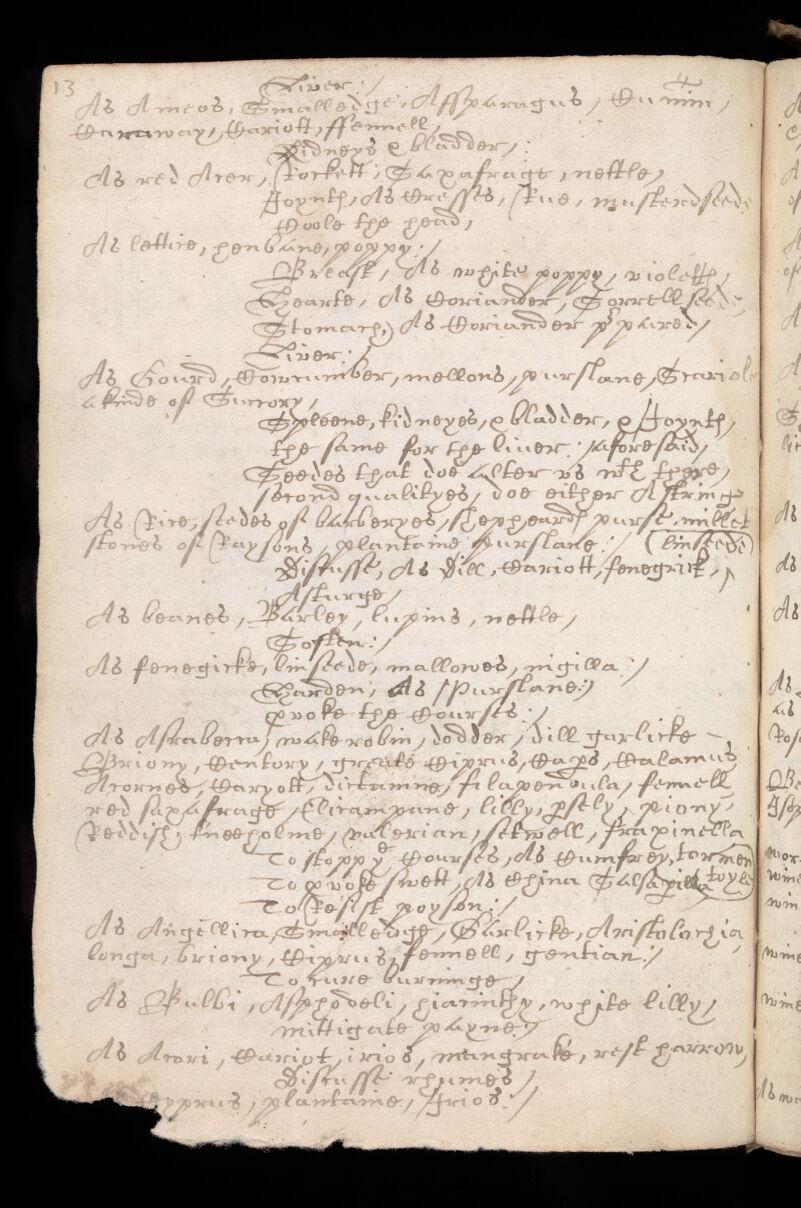 13
Liver:/
As Ameos, Smalledge, Assparagus, Cumin,
Caraway, Cariott, ffennell,
Kidneys & bladder,
As red Acer, Rockett, Saxafrage, nettle,
Joynth, As Cresses, Rue, musterdseede
Coole the head,
As lettice, henbane, poppy:/
Breast, As white poppy, violetts,
Hearte, As Coriander, Sorrell seede,
Stomach, As Coriander p'pared,/
Liver:/
As Gourd, Cowcumber, mellons, purslane, Scariole
a kinde of Succory,
Spleene, kidneyes, & bladder, & Joynth,
the same for the liver: aforesaid,
Seedes that doe alter us wth there,
second qualityes, doe either Astringe
As Rice, seedes of barberyes, shepheards purse, millet
stones of Raysons, plantaine purslane:/ (linseede)
Discusse, As Dill, Cariott, fenegrick,
Asturge,
As beanes, Barley, lupins, nettle,
Soften:/
As fenegicke, linseede, mallowes, nigilla:/
Harden, As Purslane:/
pvoke the Courses:/
As Asrabecca, wakerobin, dodder, dill garlicke
Briony, Centory, greate Ciprus, Caps, Calamus
Acornes, Caryott, dictamne, filapendula, fennell
red saxafrage, Elicampane, lilly, psely, piony,
Reddish, kneeholme, valerian, setwell, fraxinella
To stopp ye Courses, As Cumfrey, tormen
To pvoke swett, As China Salsaprilla toyle
To Resist poyson:/
As Angellica, Smalledge, Garlicke, Aristolochia
longa, briony, Ciprus, fennell, gentian:/
To cure burninge,
As Bulbi, Asphodeli, hiacinthy, white lilly,
mittigate payne:/
As Acori, Cariot, irios, mangrake, rest harrow,
Discusse rhumes,
Cyprus, plantaine, Irios:/